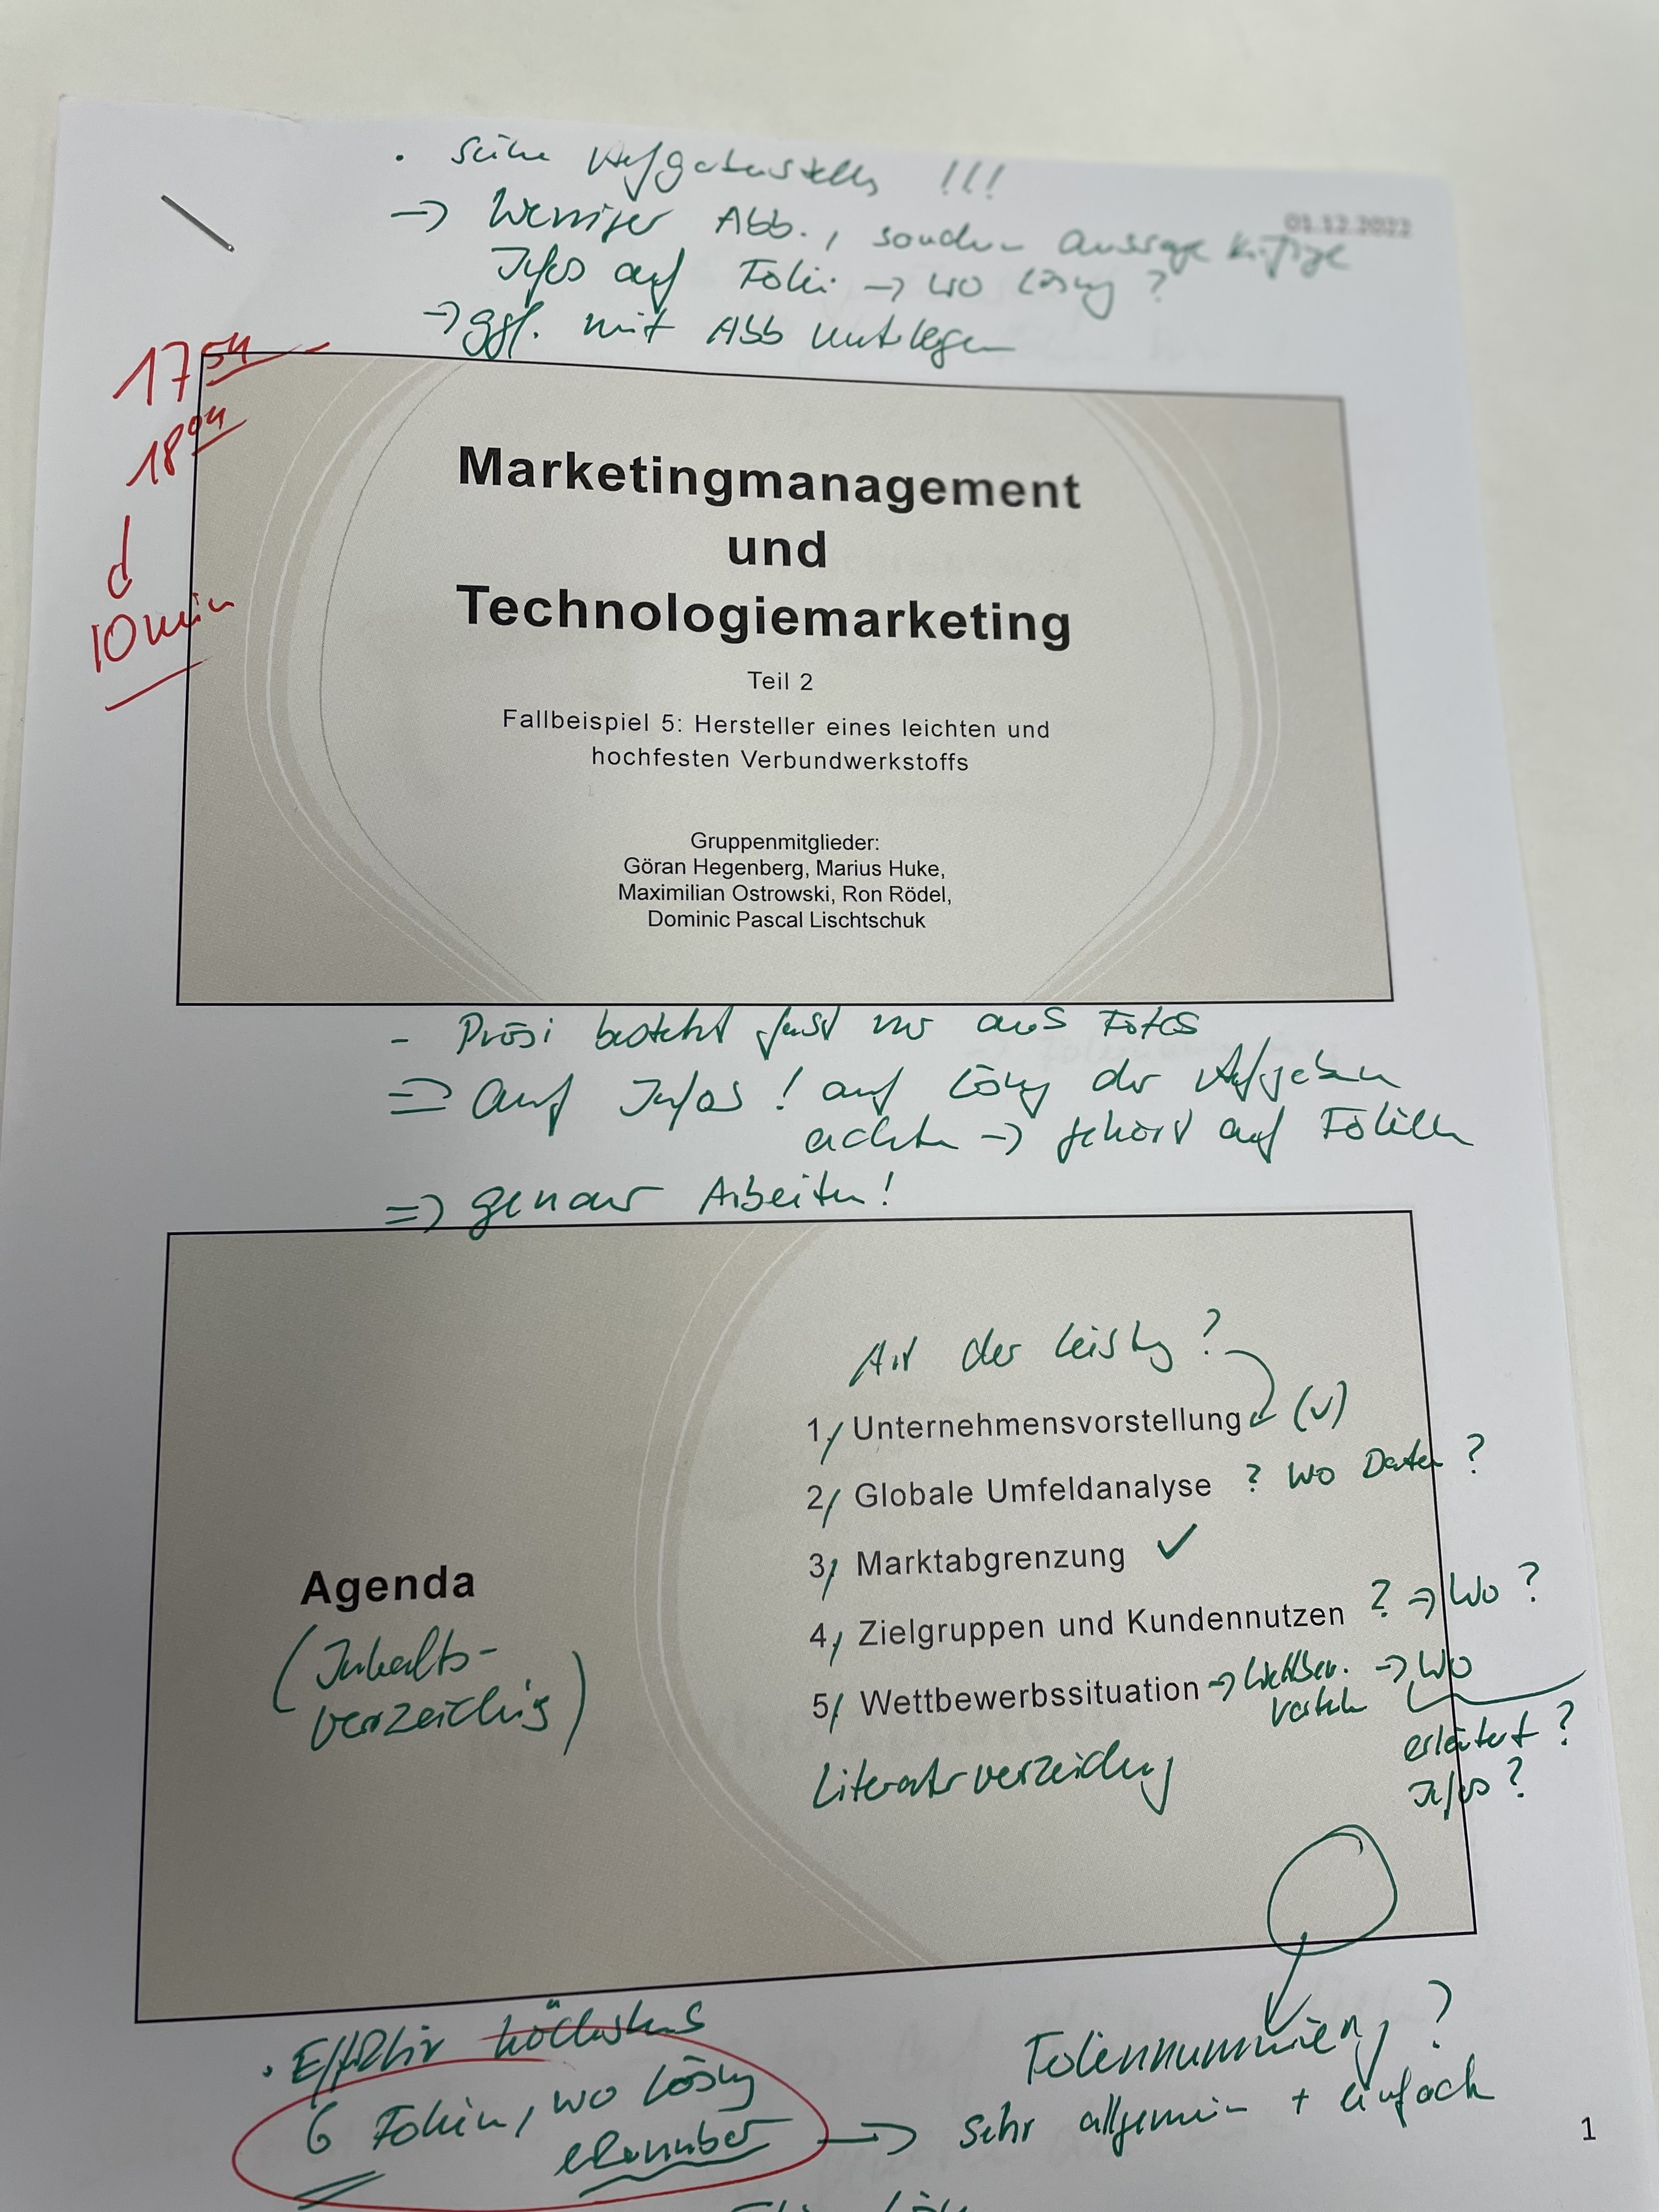 · siehe Aufgabenstellg !!!
→ Weniger Abb., sondern Aussagekräftige
01.12.2022
Infos auf Folie → wo Lösung ?
→ ggf. mit Abb unterlegen
17 54
18 04
10 min
Marketingmanagement
und
Technologiemarketing
Teil 2
Fallbeispiel 5: Hersteller eines leichten und
hochfesten Verbundwerkstoffs
Gruppenmitglieder:
Göran Hegenberg, Marius Huke,
Maximilian Ostrowski, Ron Rödel,
Dominic Pascal Lischtschuk
- Präsi besteht fast nur aus Fotos
⇒ auf Infos ! auf Lösung der Aufgaben
achten → gehört auf Folien
⇒ genau Arbeiten!
Art der Leistung ?
1, Unternehmensvorstellung (✓)
2, Globale Umfeldanalyse ? Wo Daten ?
3, Marktabgrenzung ✓
Agenda
(Inhalts-
verzeichnis)
4, Zielgruppen und Kundennutzen ? ⇒ Wo ?
5, Wettbewerbssituation → Wettbew. → Wo
vorteile
erläutert ?
Infos ?
Literaturverzeichnis
· Effektiv höchstens
6 Folien, wo Lösung
erkennbar
Foliennummern ?
→ sehr allgemein + einfach
1